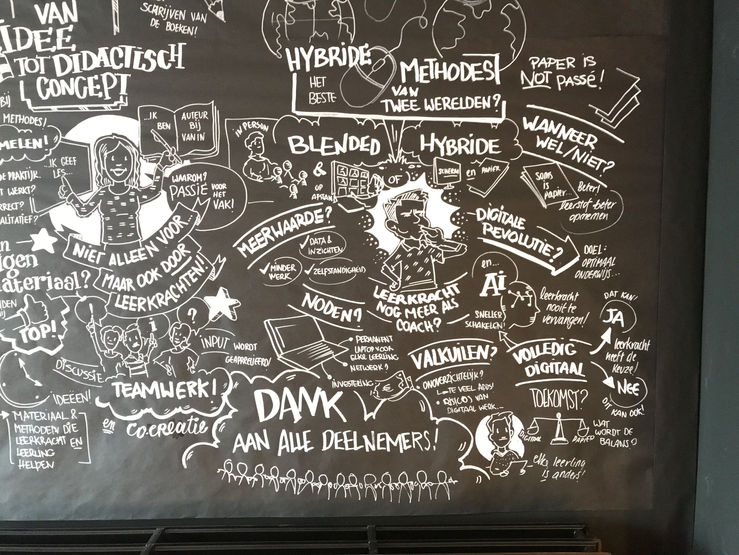 VAN
IDEE
TOT DIDACTISCH
CONCEPT
SCHRIJVEN VAN
DE BOEKEN!
BIJ
METHODES!
MELEN!
...IK
BEN
AUTEUR
BIJ
VAN IN
...IK GEEF
LES...
DE PRAKTIJK.
WERKT?
WAAROM?
PASSIE
VOOR
HET
VAK!
NIET ALLEEN VOOR...
MAAR OOK DOOR
LEERKRACHTEN!!
TOP!
DISCUSSIE
IDEEËN!
INPUT WORDT
GEAPPRECIEERD!
TEAMWERK!
en
CO-CREATIE
MATERIAAL &
METHODEN DIE
LEERKRACHT EN
LEERLING
HELPEN
HYBRIDE
METHODES
HET
BESTE
VAN
TWEE WERELDEN?
IN PERSON
BLENDED
&
OP
AFSTAND
OF
HYBRIDE
SCHERM
en
PAPIER
MEERWAARDE?
DATA &
INZICHTEN
MINDER
WERK
ZELFSTANDIGHEID
LEERKRACHT
NOG MEER ALS
COACH?
NODEN?
• PERMANENT
LAPTOP VOOR
ELKE LEERLING
• NETWERK?
• INVESTERING
VALKUILEN?
• ONOVERZICHTELIJK?
• TE VEEL APPS!
• RISICO'S VAN
DIGITAAL WERK...
DANK
AAN ALLE DEELNEMERS!
PAPER IS
NOT PASSÉ!
WANNEER
WEL/NIET?
SOMS
IS
PAPIER...
Beter!
leerstof beter
opnemen
DIGITALE
REVOLUTIE?
DOEL:
OPTIMAAL
ONDERWIJS...
en...
Ai
SNELLER
SCHAKELEN!
leerkracht
nooit te
vervangen!
VOLLEDIG
DIGITAAL
DAT KAN!
JA
leerkracht
heeft de
keuze!
NEE
DIT KAN OOK!
TOEKOMST?
DIGITAAL
PAPIER
WAT
WORDT DE
BALANS?
elke leerling
is anders!